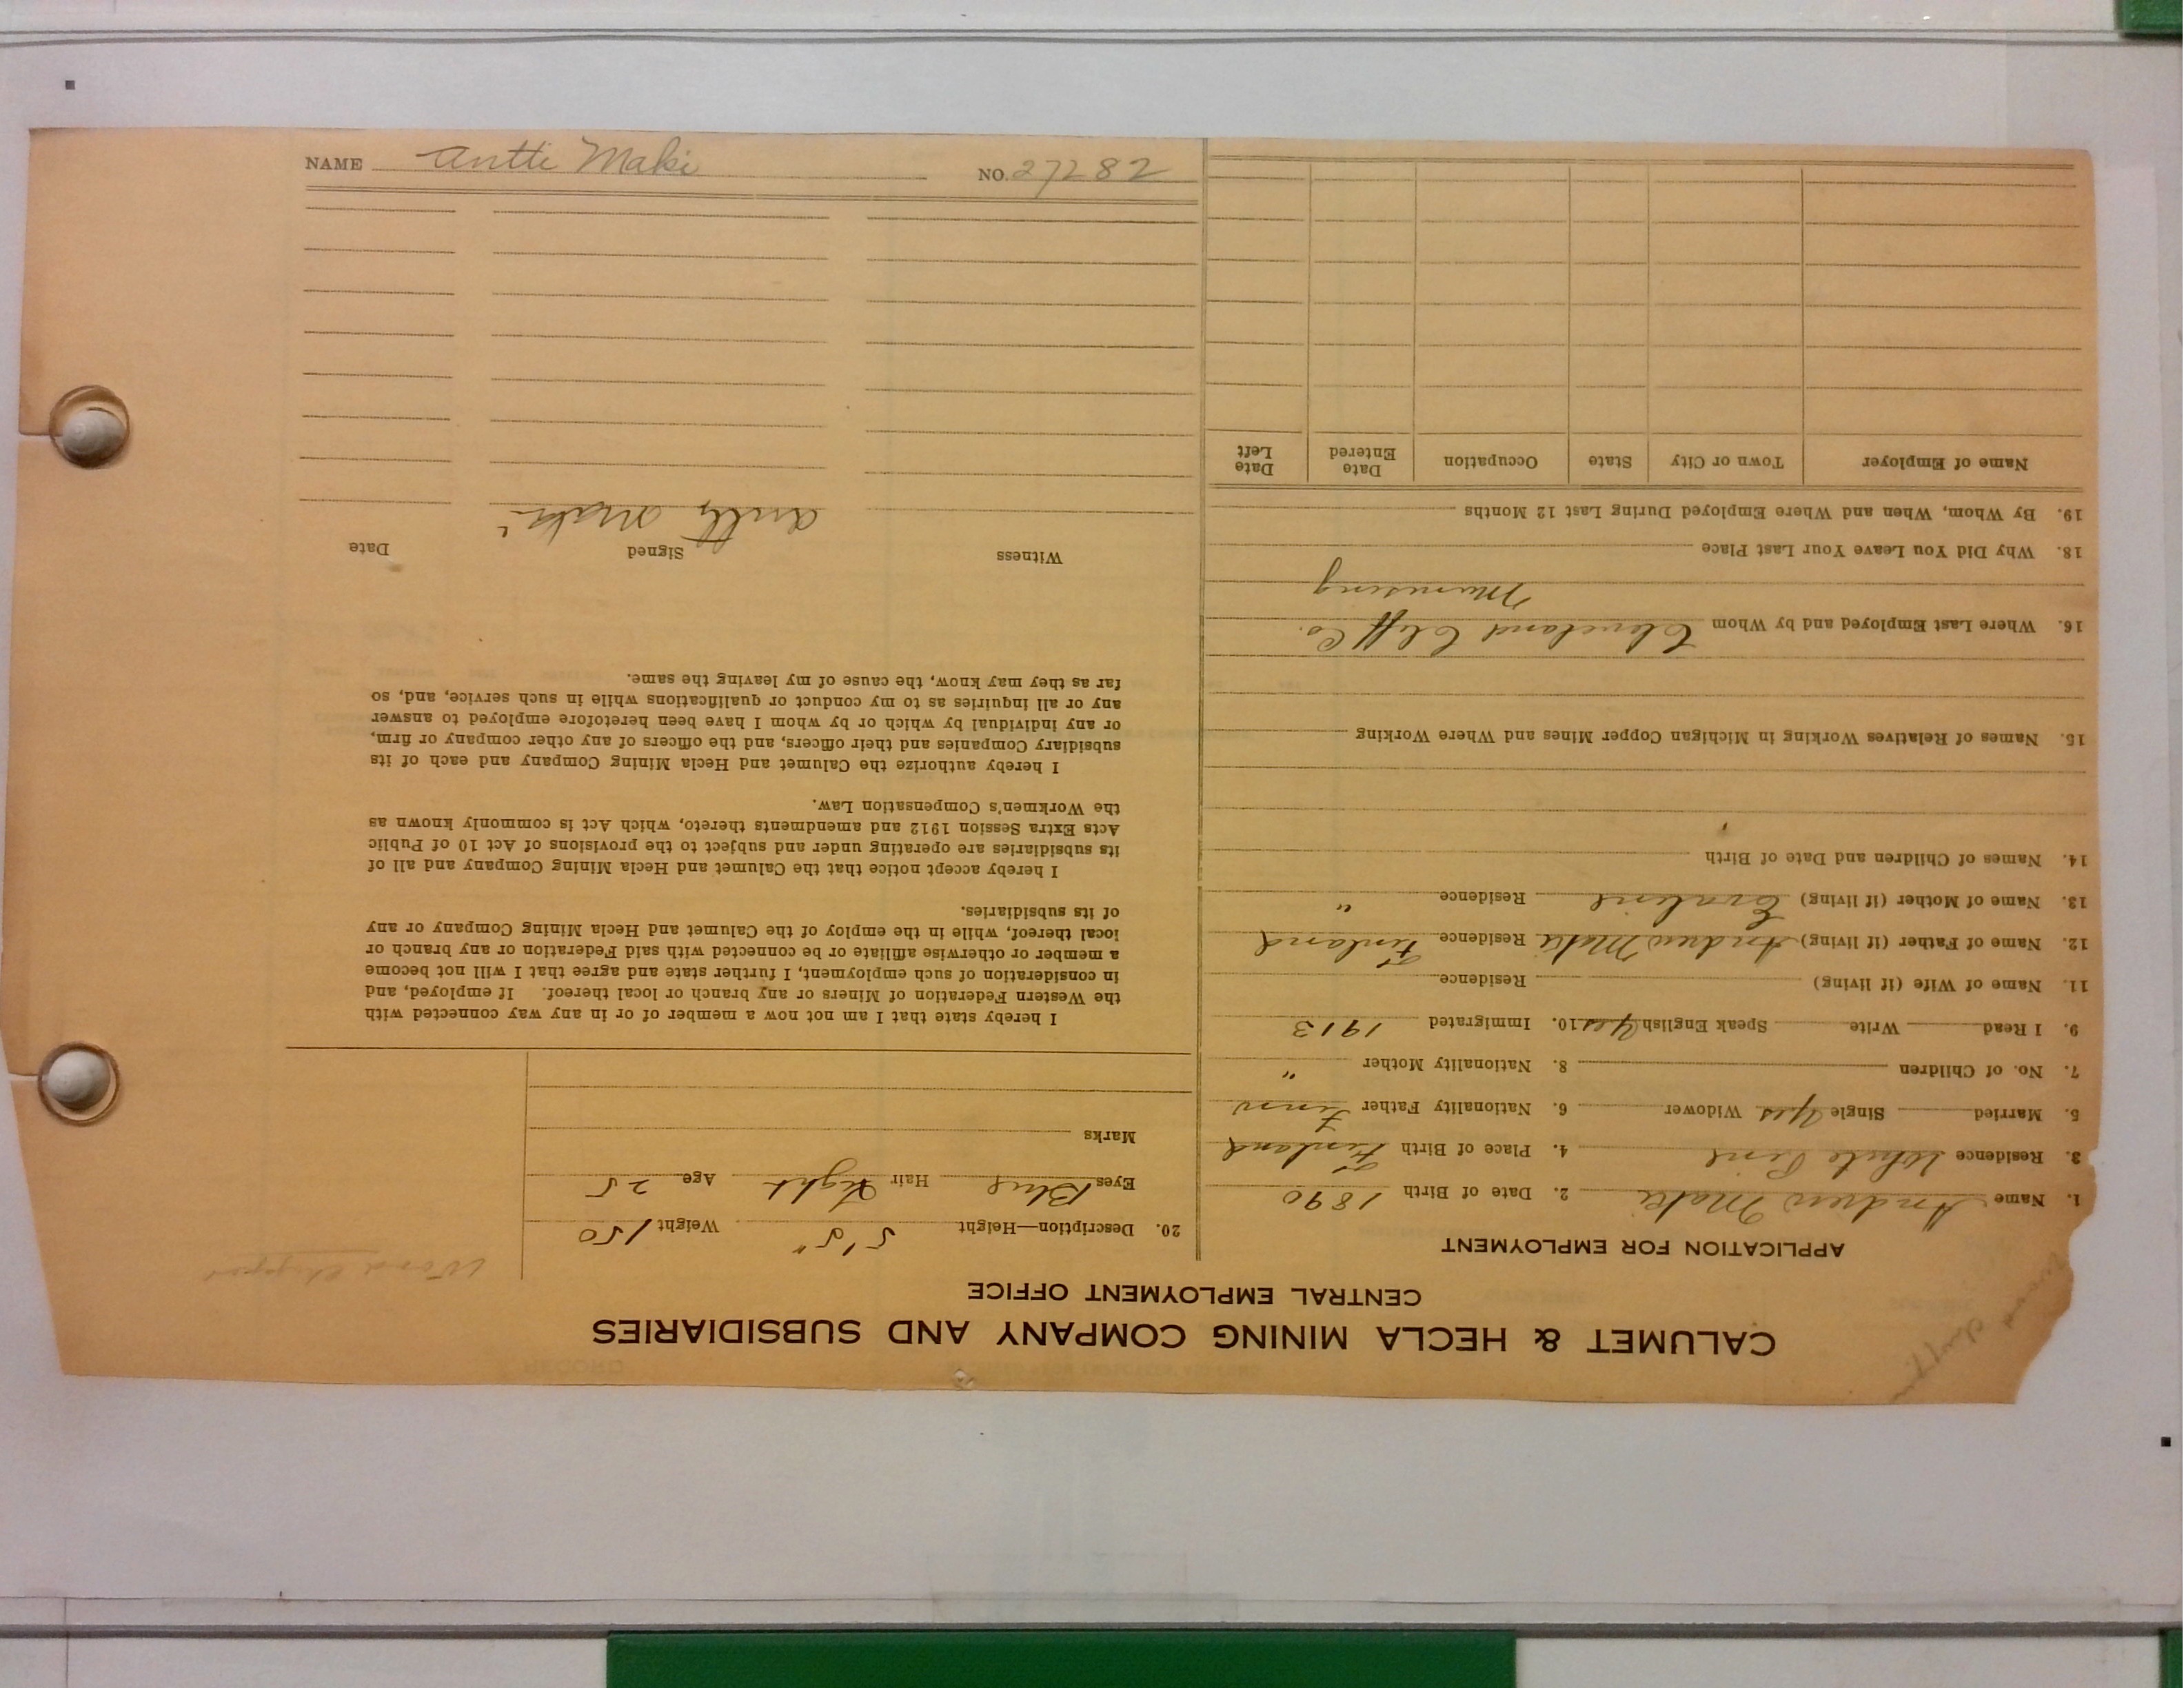 CALUMET & HECLA MINING COMPANY AND SUBSIDIARIES
CENTRAL EMPLOYMENT OFFICE
APPLICATION FOR EMPLOYMENT
1. Name Andrew Maki 2. Date of Birth 1890
3. Residence White Pine 4. Place of Birth Finland
5. Married Single Yes Widower 6. Nationality Father Finn
7. No. of Children 8. Nationality Mother "
9. I Read Write Speak English Yes 10. Immigrated 1913
11. Name of Wife (if living) Residence
12. Name of Father (if living) Andrew Maki Residence Finland
13. Name of Mother (if living) Residence "
14. Names of Children and Date of Birth
15. Names of Relatives Working in Michigan Copper Mines and Where Working
16. Where Last Employed and by Whom Cleveland Cliff Co.
Munising
18. Why Did You Leave Your Last Place
19. By Whom, When and Where Employed During Last 12 Months
Name of Employer Town or City State Occupation Date Entered Date Left
Wood
20. Description—Height 5'5" Weight 150
Eyes Blue Hair Light Age 25
Marks
I hereby state that I am not now a member of or in any way connected with
the Western Federation of Miners or any branch or local thereof. If employed, and
in consideration of such employment, I further state and agree that I will not become
a member or otherwise affiliate or be connected with said Federation or any branch or
local thereof, while in the employ of the Calumet and Hecla Mining Company or any
of its subsidiaries.
I hereby accept notice that the Calumet and Hecla Mining Company and all of
its subsidiaries are operating under and subject to the provisions of Act 10 of Public
Acts Extra Session 1912 and amendments thereto, which Act is commonly known as
the Workmen's Compensation Law.
I hereby authorize the Calumet and Hecla Mining Company and each of its
subsidiary Companies and their officers, and the officers of any other company or firm,
or any individual by which or by whom I have been heretofore employed to answer
any or all inquiries as to my conduct or qualifications while in such service, and, so
far as they may know, the cause of my leaving the same.
Witness Signed Date
Antti Maki
NAME Antti Maki NO. 27282